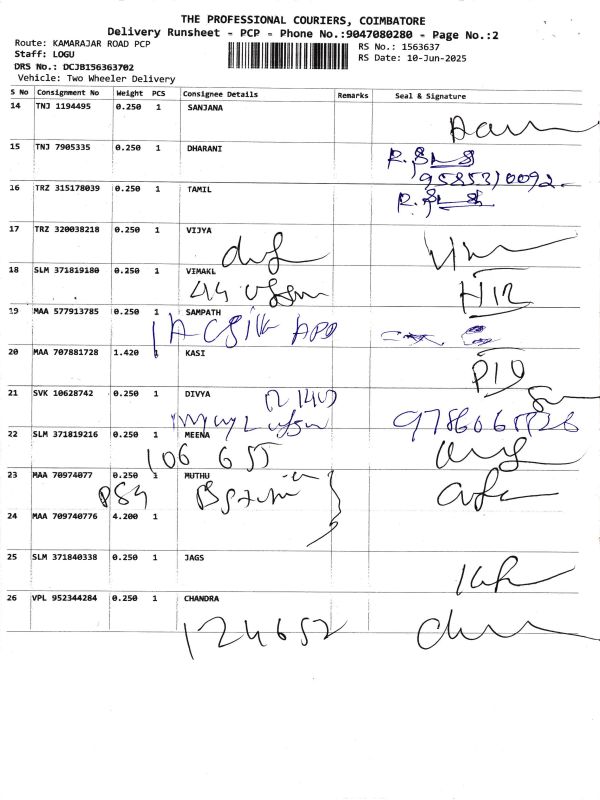 THE PROFESSIONAL COURIERS, COIMBATORE
Delivery Runsheet - PCP - Phone No.:9047080280 - Page No.:2
Route: KAMARAJAR ROAD PCP
Staff: LOGU
DRS No.: DCJB156363702
Vehicle: Two Wheeler Delivery
RS No.: 1563637
RS Date: 10-Jun-2025
S No Consignment No Weight PCS Consignee Details Remarks Seal & Signature
14 TNJ 1194495 0.250 1 SANJANA
15 TNJ 7905335 0.250 1 DHARANI
16 TRZ 315178039 0.250 1 TAMIL
17 TRZ 320038218 0.250 1 VIJYA
18 SLM 371819180 0.250 1 VIMAKL
19 MAA 577913785 0.250 1 SAMPATH
20 MAA 707881728 1.420 1 KASI
21 SVK 10628742 0.250 1 DIVYA
22 SLM 371819216 0.250 1 MEENA
106 655
23 MAA 70974077 0.250 1 MUTHU
24 MAA 709740776 4.200 1
25 SLM 371840338 0.250 1 JAGS
26 VPL 952344284 0.250 1 CHANDRA
124652